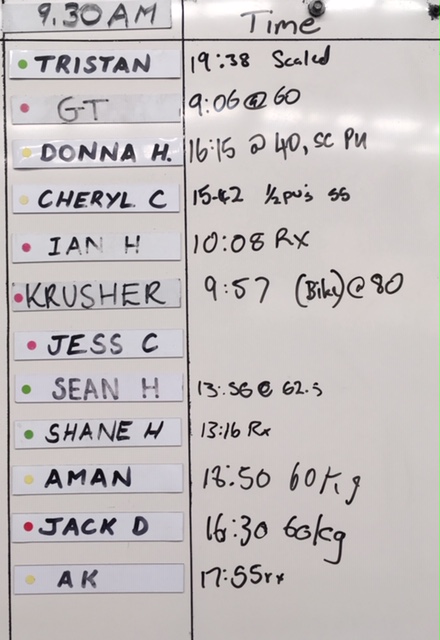 9.30AM Time
TRISTAN 19:38 Scaled
G-T 9:06 @ 60
DONNA H. 16:15 @ 40, SC PU
CHERYL C 15:42 ½ pu's ss
IAN H 10:08 RX
KRUSHER 9:57 (Bike) @ 80
JESS C
SEAN H 13:56 @ 62.5
SHANE H 13:16 Rx
AMAN 18:50 60kg
JACK D 16:30 60kg
AK 17:55 rx